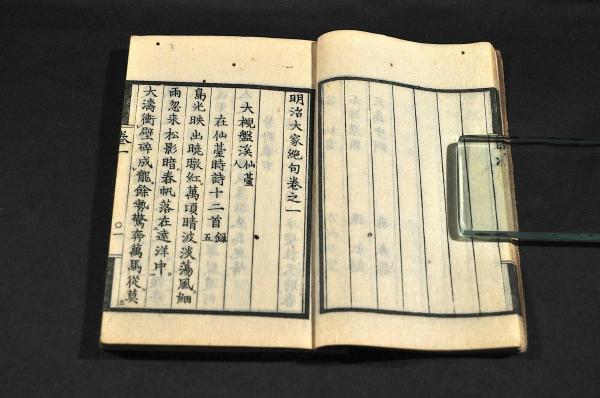 明治大家絶句卷之一
大槻盤溪仙臺人
在仙臺時詩十二首錄五
島光映出曉暾紅萬頃晴波淡蕩風細
雨忽來松影暗春帆落在遠洋中
大濤衝壁碎成龍餘勢驚奔萬馬從莫
卷一
〇一